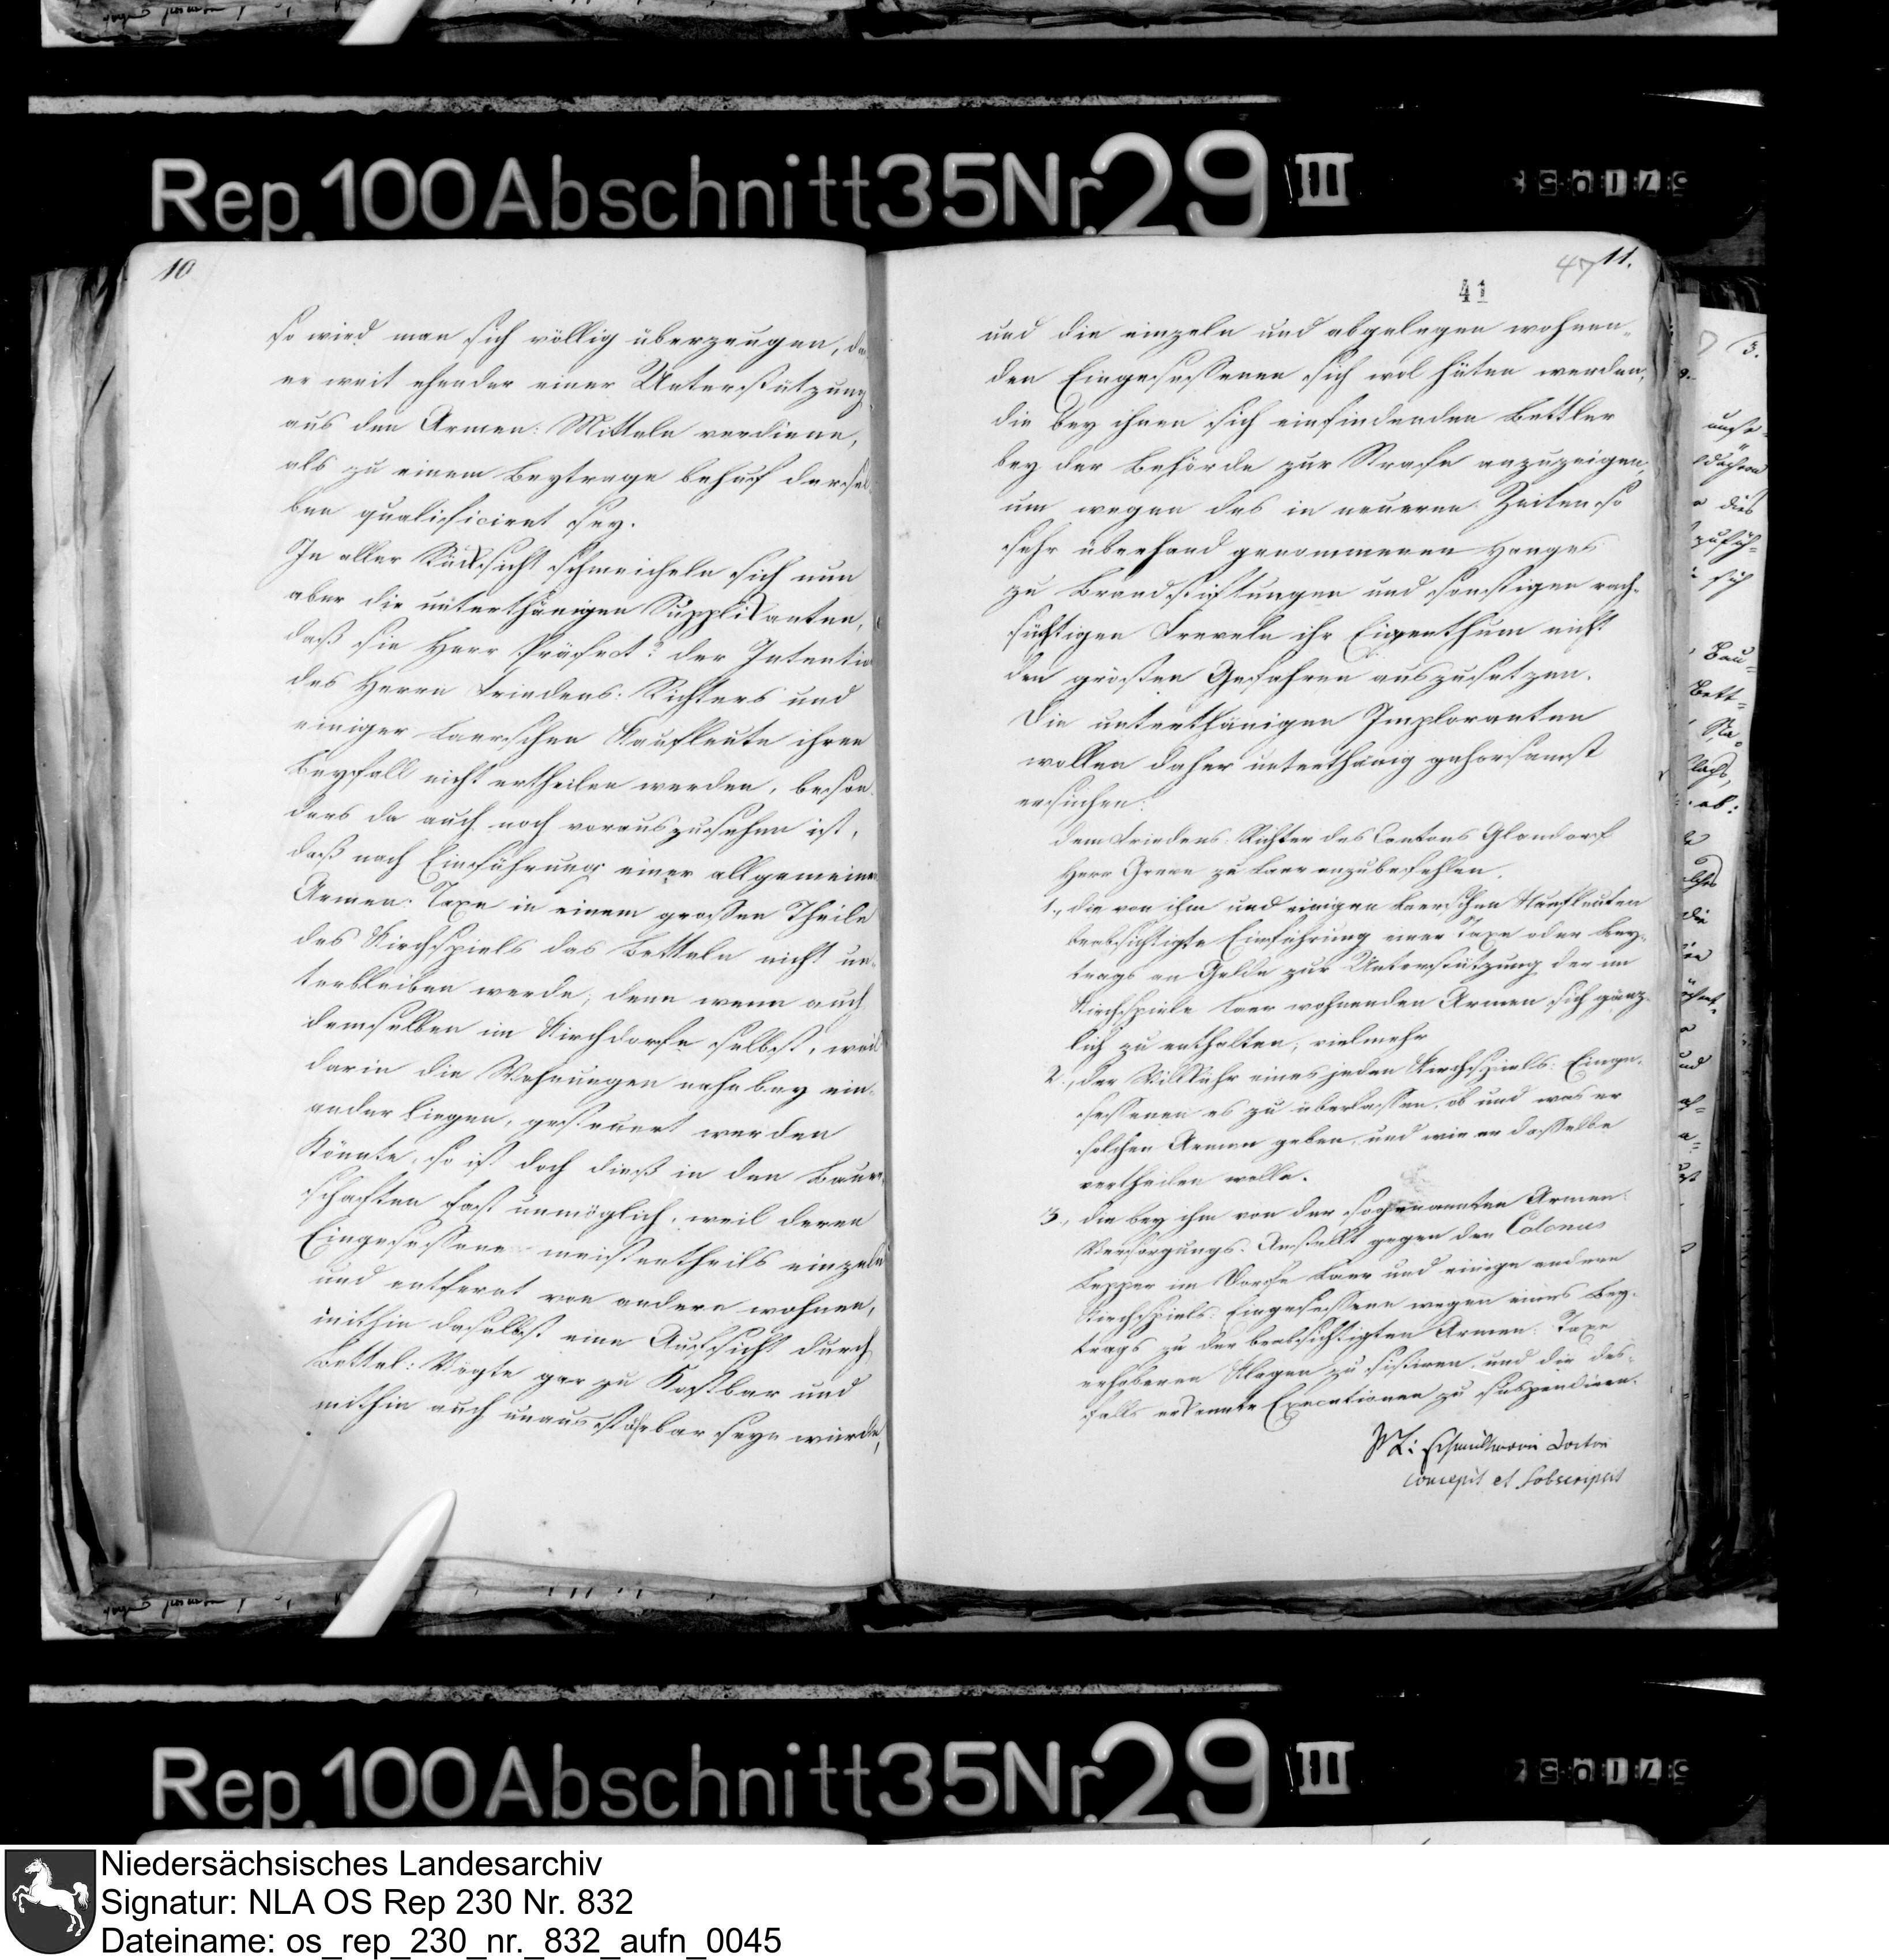 Rep. 100 Abschnitt 35 Nr. 29 III
10
so wird man sich völlig überzeugen, da
er weit ehender einer Unterstützung
aus den Armen: Mitteln verdiene,
als zu einem Beytrage behuf dersel
ben qualificiret sey.
In aller Rücksicht schmeicheln sich nun
aber die unterthänigen Supplikanten,
daß sie Herr Präfect: der Intentio
des Herrn Friedens: Richters und
einiger Laerschen Kaufleute ihren
Beyfall nicht ertheilen werden, beson
ders da auch noch vorauszusehen ist,
daß nach Einführung einer allgemeinen
Armen: Taxe in einem großen Theile
des Kirchspiels das Betteln nicht un-
terbleiben werde; denn wenn auch
demselben im Kirchdorfe selbst, weil
darin die Wohnungen nahe bey ein-
ander liegen, gesteuert werden
könnte, so ist doch dieß in den Bauer-
schaften fast unmöglich, weil deren
Eingesessene meistentheils einzeln
und entfernt von andern wohnen,
mithin daselbst eine Aufsicht durch
Bettel: Vögte gar zu kostbar und
mithin auch unausstehbar seyn würde,
47 11.
41
und die einzeln und abgelegen wohnen-
den Eingesessenen sich wol hüten werden,
die bey ihnen sich einfindenden Bettler
bey der Behörde zur Strafe anzuzeigen,
um wegen des in neueren Zeiten so
sehr überhand genommenen Hanges
zu Brandstiftungen und sonstigen rach-
süchtigen Freveln ihr Eigenthum nicht
den größten Gefahren auszusetzen.
Die unterthänigen Imploranten
wollen daher unterthänig gehorsamst
ersuchen:
dem Friedens: Richter des Cantons Glandorf
Herr Greve zu Laer anzubefehlen.
1., die von ihm und einigen Laerschen Kaufleuten
beabsichtigte Einführung einer Taxe oder Bey-
trags an Gelde zur Unterstützung der im
Kirchspiele Laer wohnenden Armen sich gänz-
lich zu enthalten, vielmehr
2., der Willkühr eines jeden Kirchspiels: Einge-
sessenen es zu überlassen, ob und was er
solchen Armen geben, und wie er dasselbe
vertheilen wolle.
3., die bey ihm von der sogenannten Armen:
Versorgungs: Anstallt gegen den Colonus
Lepper im Dorfe Laer und einige andere
Kirchspiels: Eingesessene wegen eines Bey-
trags zu der beabsichtigten Armen: Taxe
erhobenen Klagen zu sistiren, und die des-
falls erkannte Executionen zu suspendiren.
Doctor
concepit et subscripsit
Rep. 100 Abschnitt 35 Nr. 29 III
Niedersächsisches Landesarchiv
Signatur: NLA OS Rep 230 Nr. 832
Dateiname: os_rep_230_nr._832_aufn_0045